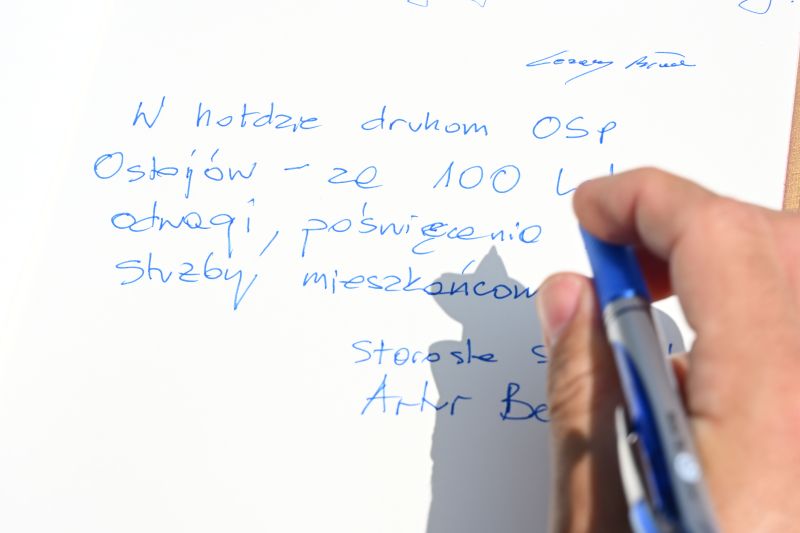 W hołdzie druhom OSP
Ostojów - za 100
odwagi, poświęcenia
służby, mieszkańcow
Starosta
Artur Be